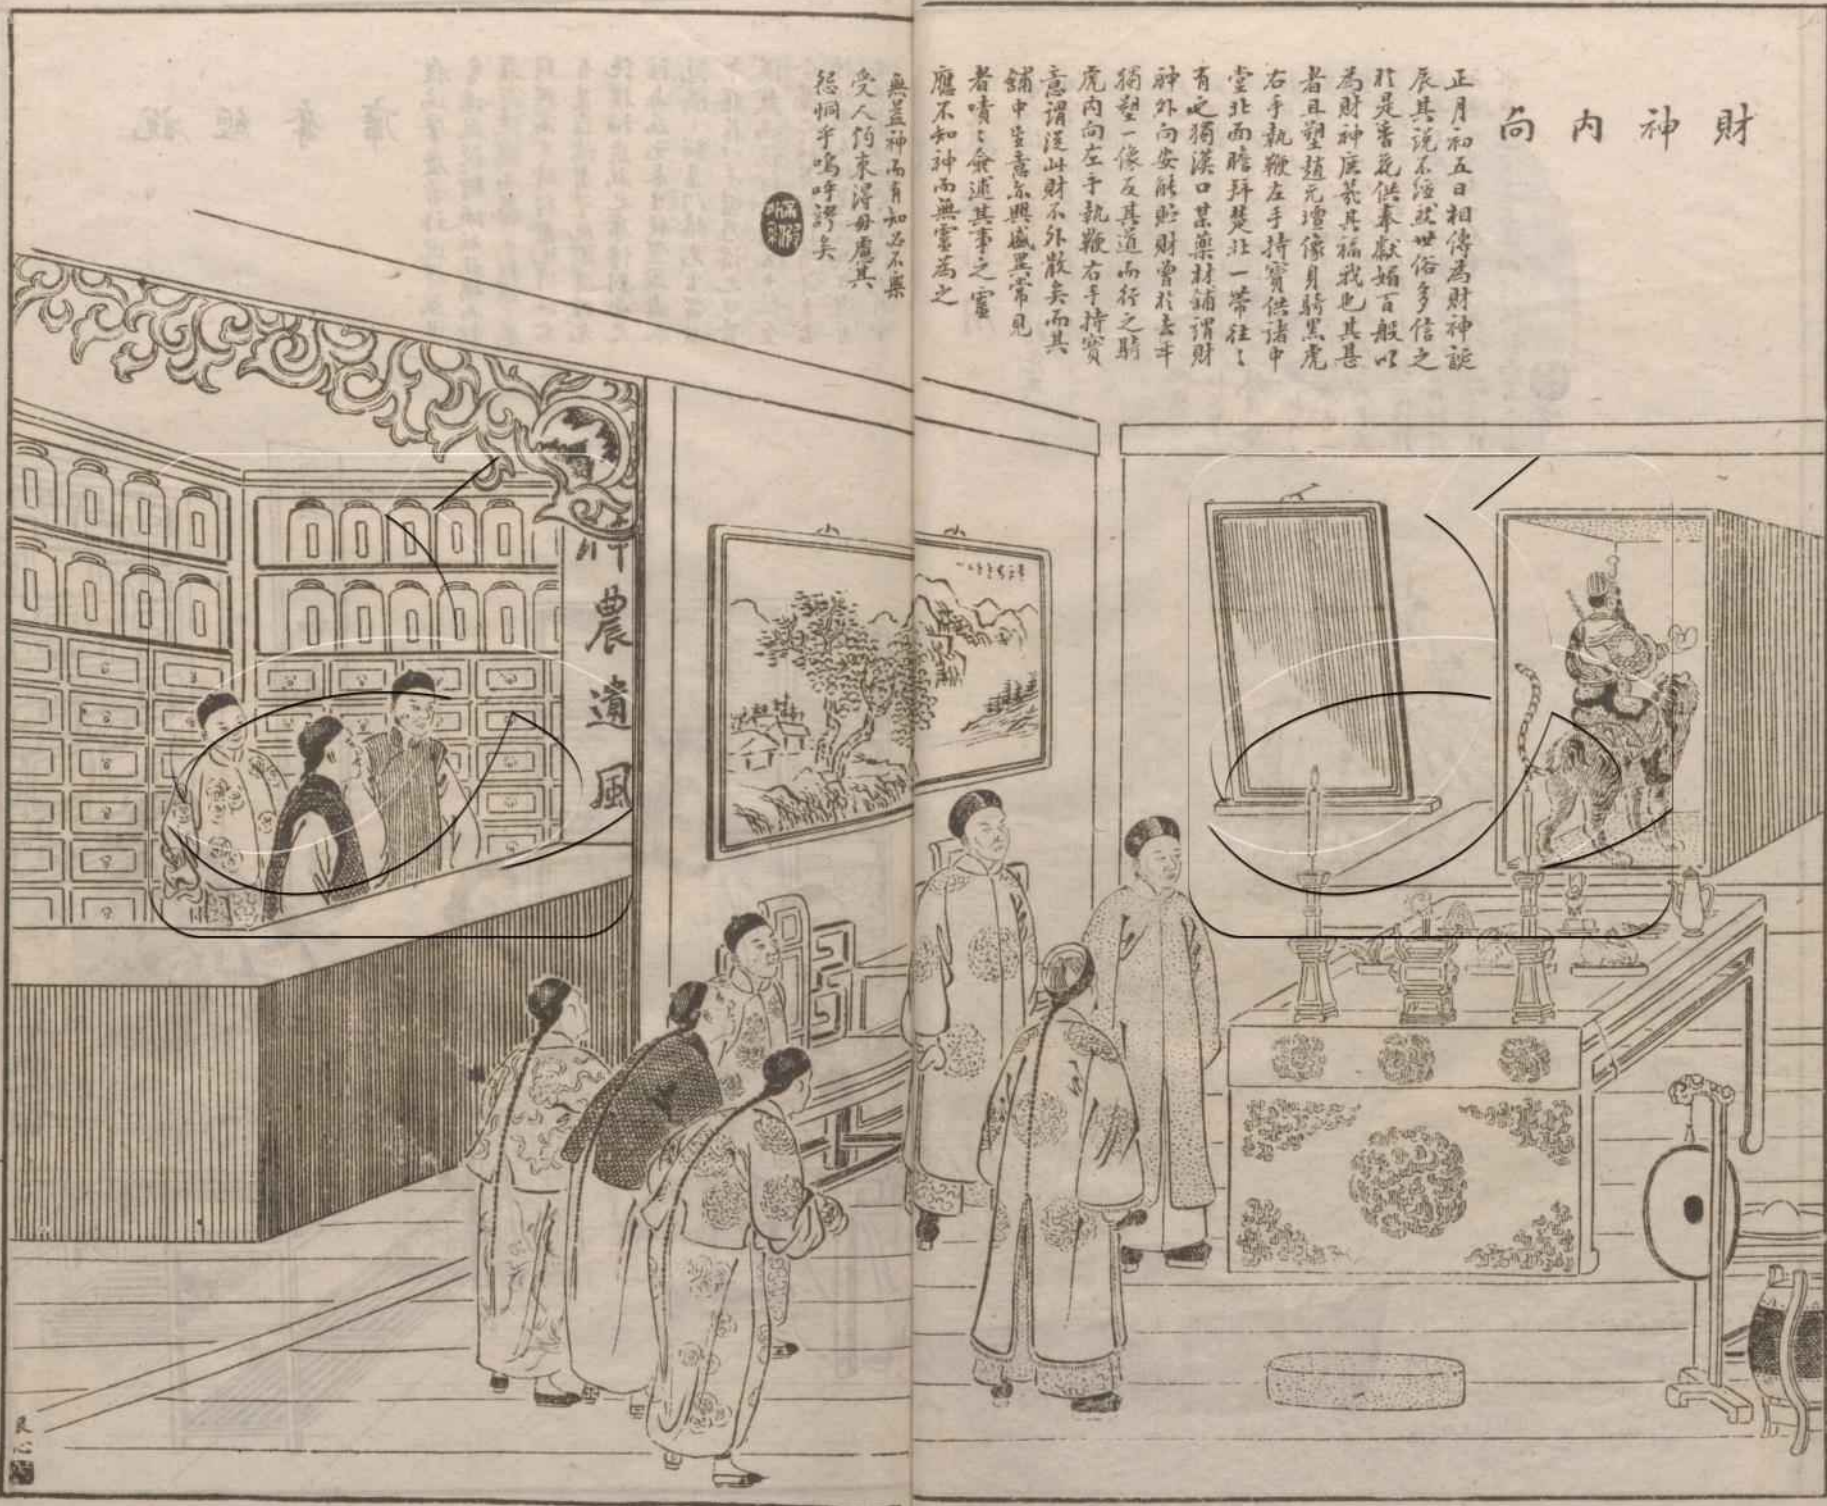 財神內向
正月初五日相傳為財神誕
辰其說不經然世俗多信之
於是香花供奉獻媚百般以
為財神庶幾其福我也其甚
者且塑趙元壇像身騎黑虎
右手執鞭左手持寶供諸中
堂北面瞻拜楚北一帶往〻
有之獨漢口某藥材鋪謂財
神外向安能貯財曾於去年
獨塑一像反其道而行之騎
虎內向左手執鞭右手持寶
意謂從此財不外散矣而其
鋪中生意亦興盛異常見
者嘖〻羨述其事之靈
應不知神而無靈為之
無益神而有知必不樂
受人約束得毋慮其
怨恫乎嗚呼謬矣
神農遺風